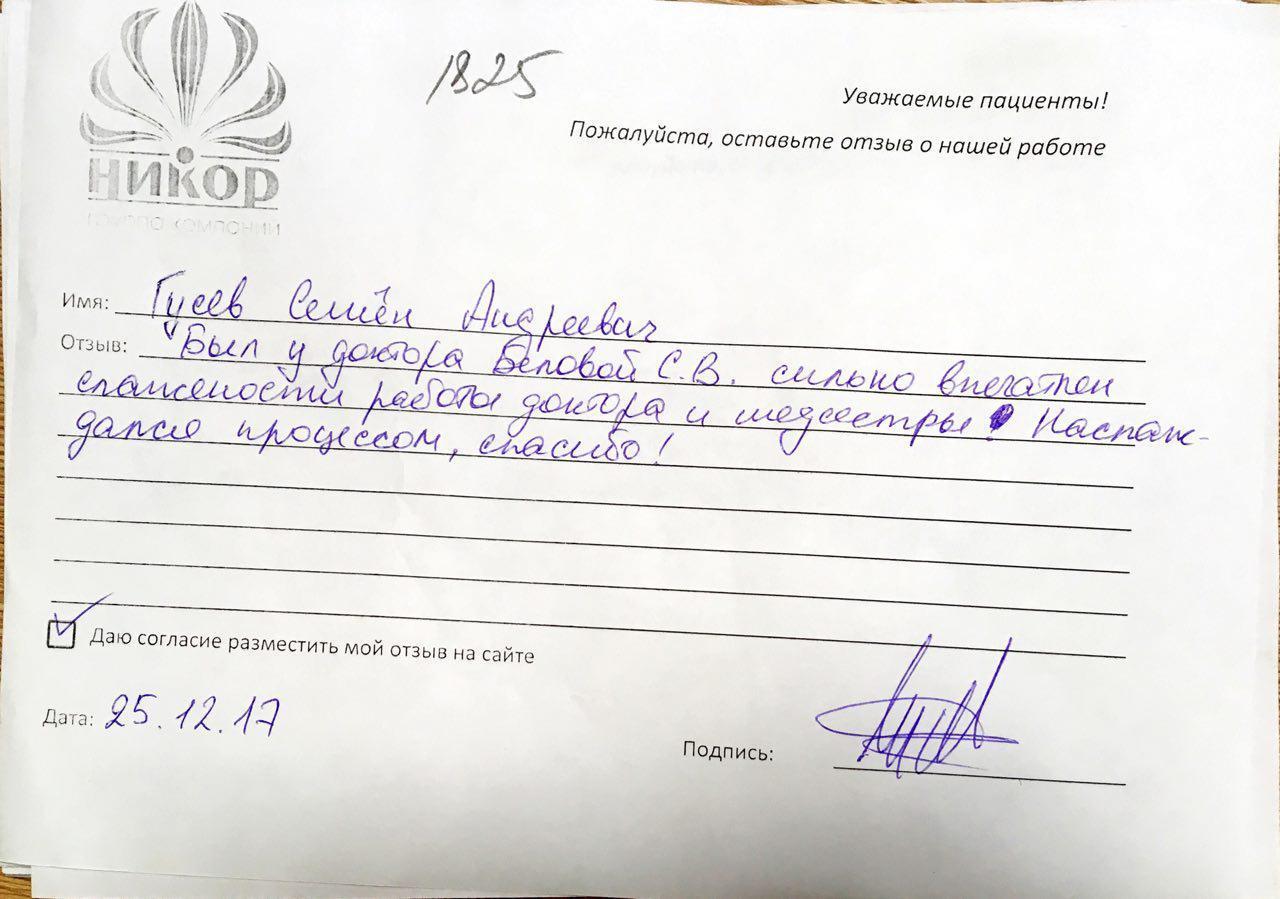 1825
Уважаемые пациенты!
Пожалуйста, оставьте отзыв о нашей работе
НИКОР
ГРУППА КОМПАНИЙ
Имя: Гусев Семён Андреевич
Отзыв: "Был у доктора Беловой С.В. сильно впечатлен
слажености работы доктора и медсестры! Наслаж-
дался процессом, спасибо!
Даю согласие разместить мой отзыв на сайте
Дата: 25.12.17
Подпись: